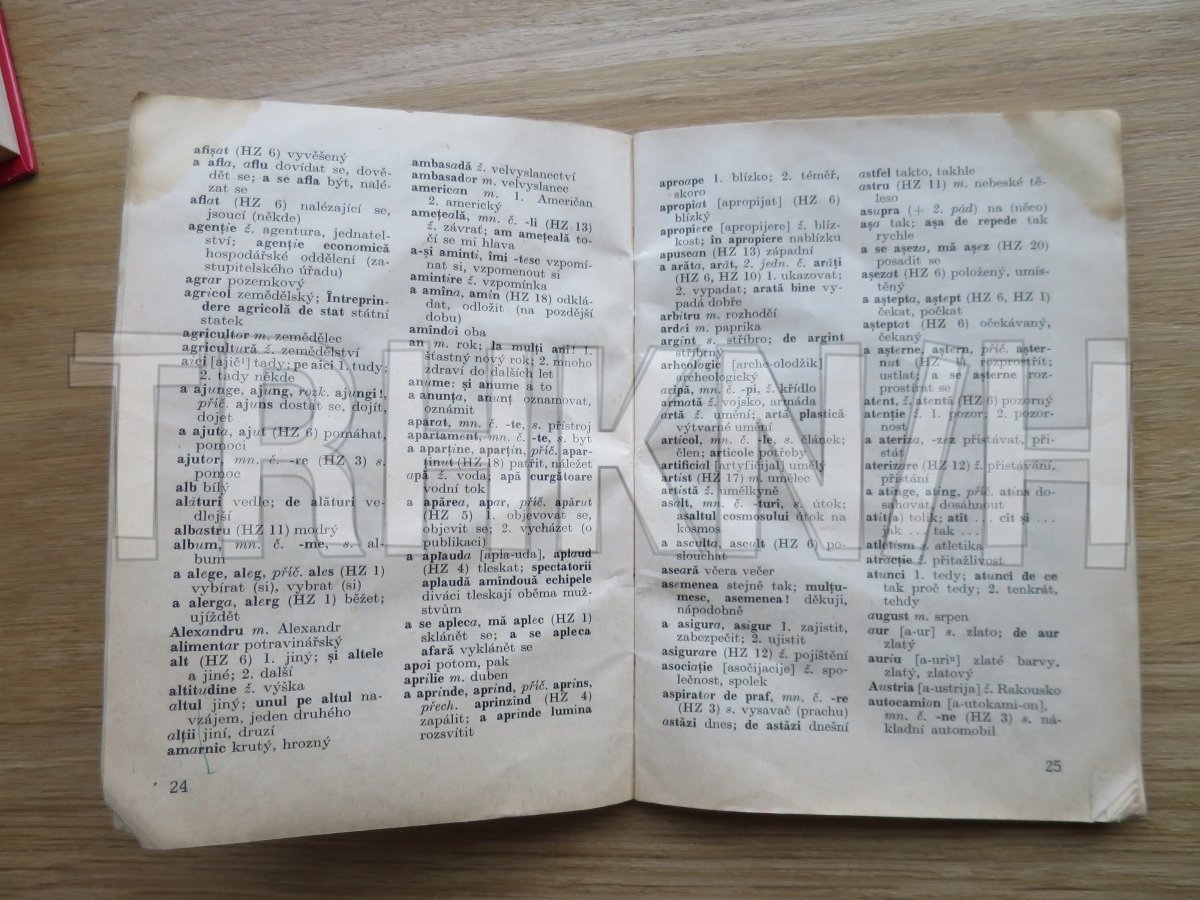 afișat (HZ 6) vyvěšený
a afla, aflu dovídat se, dově-
dět se; a se afla být, nalé-
zat se
aflat (HZ 6) nalézající se,
jsoucí (někde)
agenție ž. agentura, jednatel-
ství; agenție economică
hospodářské oddělení (za-
stupitelského úřadu)
agrar pozemkový
agricol zemědělský; Întreprin-
dere agricolă de stat státní
statek
agricultor m. zemědělec
agricultură ž. zemědělství
aici [ajičⁱ] tady; pe aici 1. tudy;
2. tady někde
a ajunge, ajung, rozk. ajungi!,
příč. ajuns dostat se, dojít,
dojet
a ajuta, ajut (HZ 6) pomáhat,
pomoci
ajutor, mn. č. -re (HZ 3) s.
pomoc
alb bílý
alături vedle; de alături ve-
dlejší
albastru (HZ 11) modrý
album, mn. č. -me, s. al-
bum
a alege, aleg, příč. ales (HZ 1)
vybírat (si), vybrat (si)
a alerga, alerg (HZ 1) běžet;
ujíždět
Alexandru m. Alexandr
alimentar potravinářský
alt (HZ 6) 1. jiný; și altele
a jiné; 2. další
altitudine ž. výška
altul jiný; unul pe altul na-
vzájem, jeden druhého
alții jiní, druzí
amarnic krutý, hrozný
24
ambasadă ž. velvyslanectví
ambasador m. velvyslanec
american m. 1. Američan
2. americký
amețeală, mn. č. -li (HZ 13)
ž. závrať; am amețeală to-
čí se mi hlava
a-și aminti, îmi -tesc vzpomí-
nat si, vzpomenout si
amintire ž. vzpomínka
a amîna, amîn (HZ 18) odklá-
dat, odložit (na pozdější
dobu)
amîndoi oba
an m. rok; la mulți ani! 1.
šťastný nový rok; 2. mnoho
zdraví do dalších let
anume: și anume a to
a anunța, anunț oznamovat,
oznámit
aparat, mn. č. -te, s. přístroj
apartament, mn. č. -te, s. byt
a aparține, aparțin, příč. apar-
ținut (HZ 18) patřit, náležet
apă ž. voda; apă curgătoare
vodní tok
a apărea, apar, příč. apărut
(HZ 5) 1. objevovat se,
objevit se; 2. vycházet (o
publikaci)
a aplauda [apla-uda], aplaud
(HZ 4) tleskat; spectatorii
aplaudă amîndouă echipele
diváci tleskají oběma muž-
stvům
a se apleca, mă aplec (HZ 1)
sklánět se; a se apleca
afară vyklánět se
apoi potom, pak
aprilie m. duben
a aprinde, aprind, příč. aprins,
přech. aprinzind (HZ 4)
zapálit; a aprinde lumina
rozsvítit
aproape 1. blízko; 2. téměř,
skoro
apropiat [apropijat] (HZ 6)
blízký
apropiere [apropijere] ž. blíz-
kost; în apropiere nablízku
apusean (HZ 13) západní
a arăta, arăt, 2. jedn. č. arăți
(HZ 6, HZ 10) 1. ukazovat;
2. vypadat; arată bine vy-
padá dobře
arbitru m. rozhodčí
ardei m. paprika
argint s. stříbro; de argint
stříbrný
arheologic [arche-olodžik]
archeologický
aripă, mn. č. -pi, ž. křídlo
armată ž. vojsko, armáda
artă ž. umění; artă plastică
výtvarné umění
articol, mn. č. -le, s. článek;
člen; articole potřeby
artificial [artyfičijal] umělý
artist (HZ 17) m. umělec
artistă ž. umělkyně
asalt, mn. č. -turi, s. útok;
asaltul cosmosului útok na
kosmos
a asculta, ascult (HZ 6) po-
slouchat
aseară včera večer
asemenea stejně tak; mulțu-
mesc, asemenea! děkuji,
nápodobně
a asigura, asigur 1. zajistit,
zabezpečit; 2. ujistit
asigurare (HZ 12) ž. pojištění
asociație [asočijacije] ž. spo-
lečnost, spolek
aspirator de praf, mn. č. -re
(HZ 3) s. vysavač (prachu)
astăzi dnes; de astăzi dnešní
astfel takto, takhle
astru (HZ 11) m. nebeské tě-
leso
asupra (+ 2. pád) na (něco)
așa tak; așa de repede tak
rychle
a se așeza, mă așez (HZ 20)
posadit se
așezat (HZ 6) položený, umís-
těný
a aștepta, aștept (HZ 6, HZ 1)
čekat, počkat
așteptat (HZ 6) očekávaný,
čekaný
a așterne, aștern, příč. așter-
nut (HZ 1) rozprostřít;
ustlat; a se așterne roz-
prostírat se
atent, ž. atentă (HZ 6) pozorný
atenție ž. 1. pozor; 2. pozor-
nost
a ateriza, -zez přistávat, při-
stát
aterizare (HZ 12) ž. přistávání,
přistání
a atinge, ating, příč. atins do-
sahovat, dosáhnout
atît(a) tolik; atît ... cît și ...
jak ... tak ...
atletism s. atletika
atracție ž. přitažlivost
atunci 1. tedy; atunci de ce
tak proč tedy; 2. tenkrát,
tehdy
august m. srpen
aur [a-ur] s. zlato; de aur
zlatý
auriu [a-uriᵘ] zlaté barvy,
zlatý, zlatový
Austria [a-ustrija] ž. Rakousko
autocamion [a-utokami-on],
mn. č. -ne (HZ 3) s. ná-
kladní automobil
25
TRHKNIH